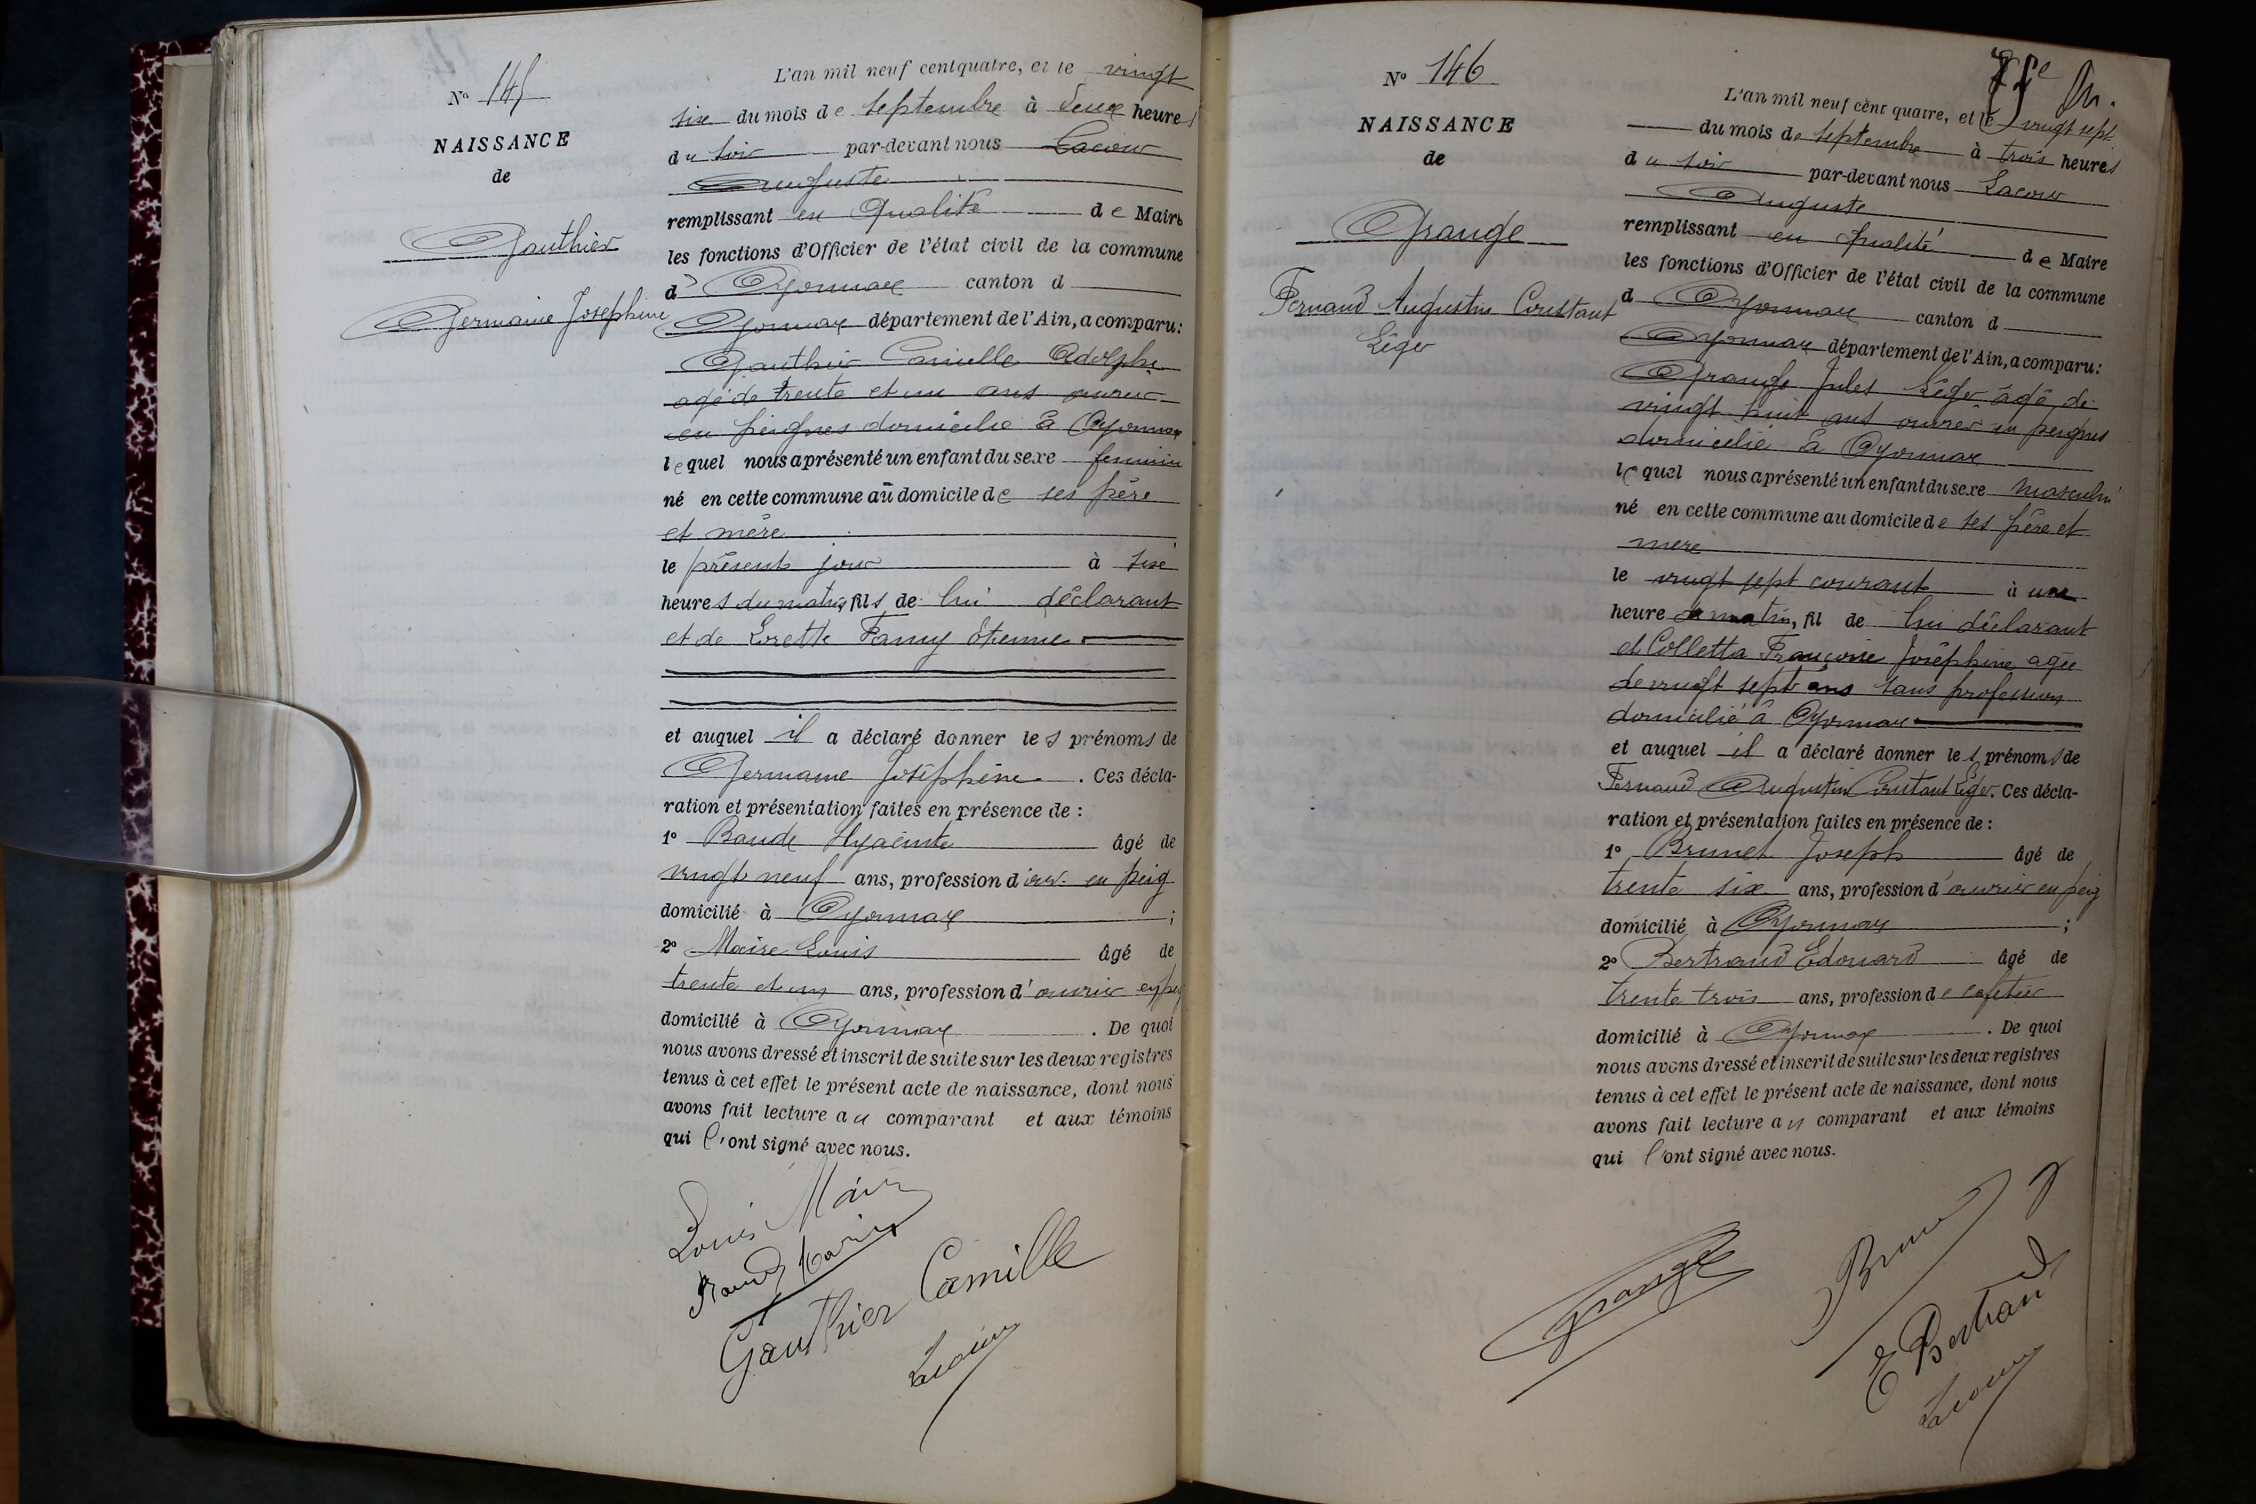 Nº 145
NAISSANCE
de
Gauthier
Germaine Josephine
L'an mil neuf cent quatre, et le vingt
six du mois de septembre à deux heures
du soir par-devant nous Lacour
Auguste
remplissant en qualité de Maire
les fonctions d'Officier de l'état civil de la commune
d' Oyonnax canton d
Oyonnax département de l'Ain, a comparu:
Gauthier Camille Adolphe
agé de trente et un ans ouvrier
en peignes domicilié à Oyonnax
lequel nous a présenté un enfant du sexe feminin
né en cette commune au domicile de ses père
et mère
le présent jour à six
heures du matin, fils de lui déclarant
et de Lorette Fanny Etienne
et auquel il a déclaré donner les prénoms de
Germaine Joséphine. Ces décla-
ration et présentation faites en présence de :
1º Baude Hyacinte âgé de
vingt neuf ans, profession d'ouv. en peig
domicilié à Oyonnax ;
2º Maire Louis âgé de
trente et un ans, profession d'ouvrier en peig
domicilié à Oyonnax. De quoi
nous avons dressé et inscrit de suite sur les deux registres
tenus à cet effet le présent acte de naissance, dont nous
avons fait lecture au comparant et aux témoins
qui l'ont signé avec nous.
Louis Maire
Gauthier Camille
Lacour
25e
Nº 146
NAISSANCE
de
Grange
Fernand Augustin Constant
Léger
L'an mil neuf cent quatre, et le vingt sept
du mois de septembre à trois heures
du soir par-devant nous Lacour
Auguste
remplissant en qualité de Maire
les fonctions d'Officier de l'état civil de la commune
d Oyonnax canton d
Oyonnax département de l'Ain, a comparu:
Grange Jules Léger âgé de
vingt huit ans ouvrier en peignes
domicilié à Oyonnax
lequel nous a présenté un enfant du sexe masculin
né en cette commune au domicile de ses père et
mère
le vingt sept courant à une
heure du matin, fil de lui déclarant
et Colletta Françoise Joséphine agée
de vingt sept ans sans profession
domicilié à Oyonnax
et auquel il a déclaré donner les prénoms de
Fernand Augustin Constant Léger. Ces décla-
ration et présentation faites en présence de :
1º Brunet Joseph âgé de
trente six ans, profession d'ouvrier en peig
domicilié à Oyonnax ;
2º Bertrand Edouard âgé de
trente trois ans, profession de cafetier
domicilié à Oyonnax. De quoi
nous avons dressé et inscrit de suite sur les deux registres
tenus à cet effet le présent acte de naissance, dont nous
avons fait lecture au comparant et aux témoins
qui l'ont signé avec nous.
Grange
E Bertrand
Lacour